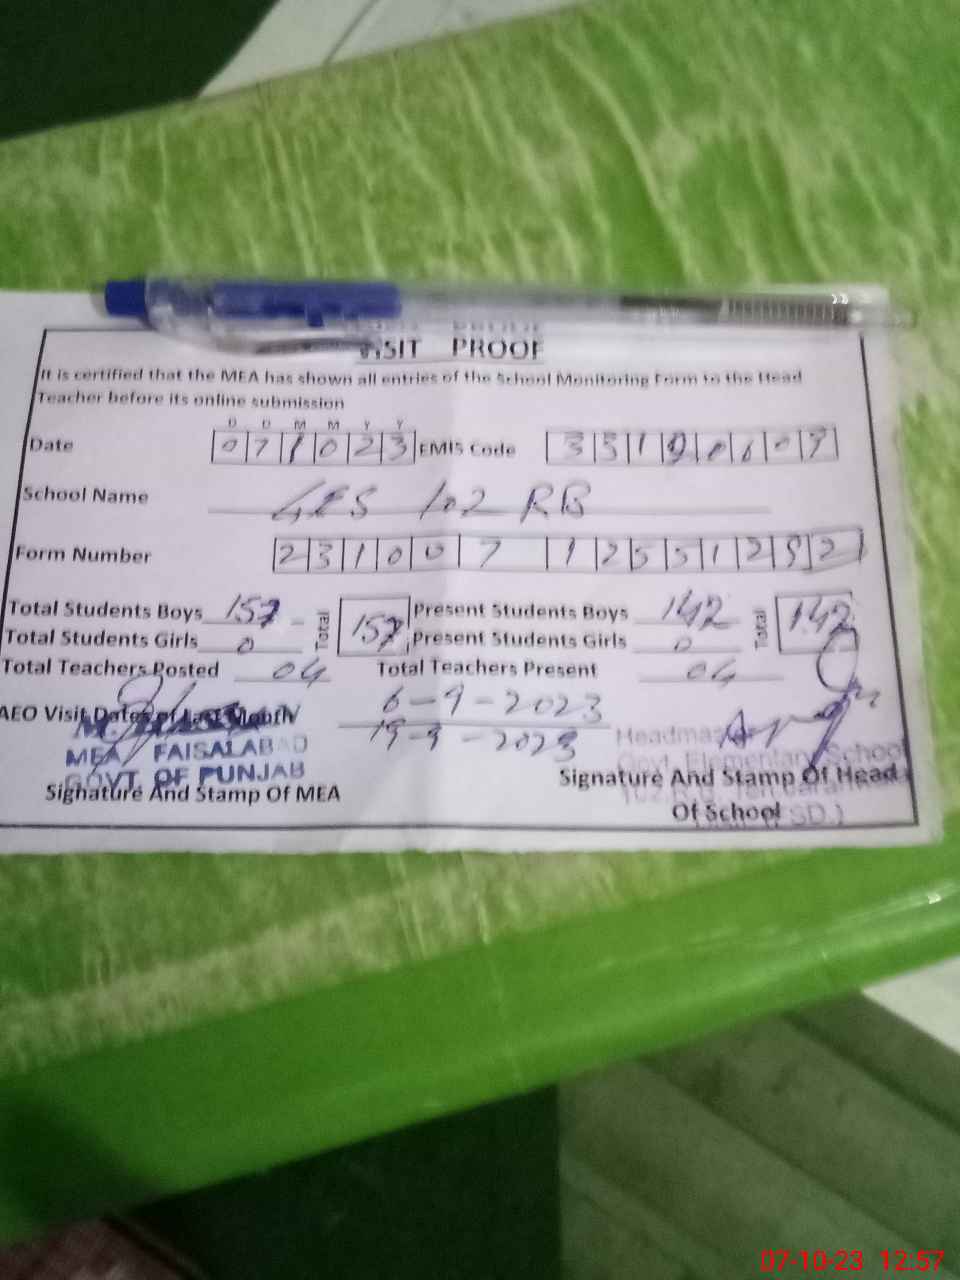 VISIT PROOF
It is certified that the MEA has shown all entries of the School Monitoring Form to the Head
Teacher before its online submission
D D M M Y Y
Date 0 7 1 0 2 3 EMIS Code
School Name GES 102 RB
Form Number 2 3 1 0 0 7 1 2 5 5 1 2 5 2
Total Students Boys 157 Total 157 Present Students Boys 142 Total 142
Total Students Girls 0 Present Students Girls 0
Total Teachers Posted 04 Total Teachers Present 04
AEO Visit Dates of Last Month 6-9-2023
19-9-2023
MEA FAISALABAD
GOVT. OF PUNJAB
Signature And Stamp Of MEA
Govt. Elementary School
Signature And Stamp Of Head
Of School
07-10-23 12:57